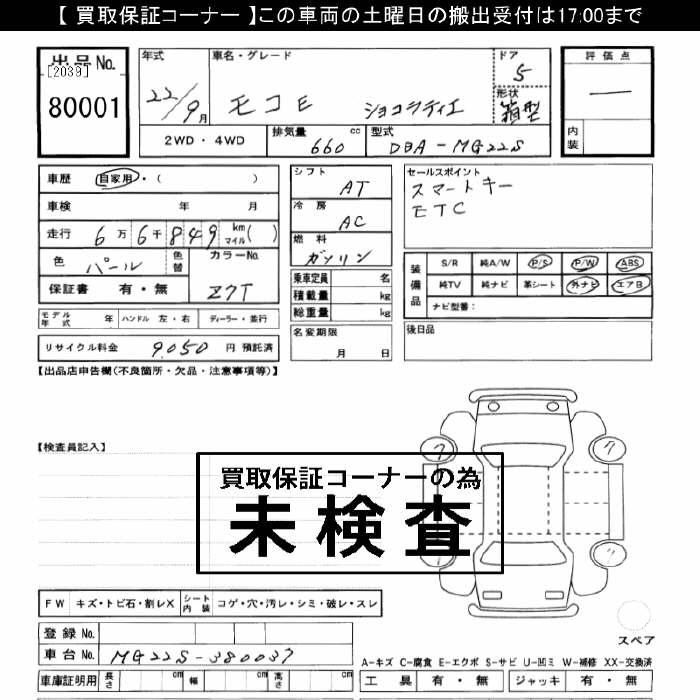 【 買取保証コーナー 】この車両の土曜日の搬出受付は17:00まで
出品No.
[2039]
80001
年式 車名・グレード ドア 評価点
22/9月 モコE ショコラティエ 5 ―
形状 箱型
2WD・4WD 排気量 660 cc 型式 DBA-MG22S 内装
車歴 自家用・( )
車検 年 月
走行 6万6千849 km マイル( )
色 パール 色替 カラーNo. Z7T
保証書 有・無
シフト AT
冷房 AC
燃料 ガソリン
乗車定員 名
積載量 kg
総重量 kg
名変期限 月 日
セールスポイント
スマートキー
ETC
装備品 S/R 純A/W P/S P/W ABS
純TV 純ナビ 革シート 外ナビ エアB
ナビ型番：
後日品
モデル年式 年 ハンドル 左・右 ディーラー・並行
リサイクル料金 9,050 円 預託済
【出品店申告欄(不良箇所・欠品・注意事項等)】
【検査員記入】
買取保証コーナーの為
未検査
7 7
7 7
FW キズ・トビ石・割レX シート内装 コゲ・穴・汚レ・シミ・破レ・スレ
スペア
登録No.
車台No. MG22S-380037
A-キズ C-腐食 E-エクボ S-サビ U-凹ミ W-補修 XX-交換済
車庫証明用 長さ cm 幅 cm 高さ cm 工具 有・無 ジャッキ 有・無